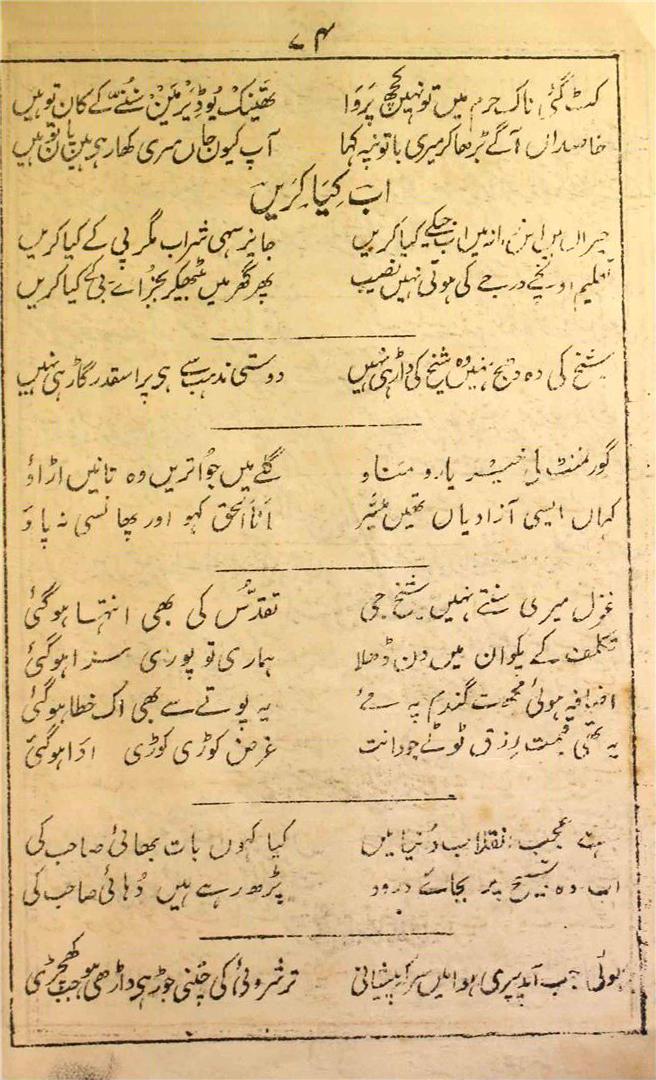 ۷۴
کٹ گئی ناک حرم میں تو نہیں کچھ پَروَا تھینک یُو ڈِیر مَین سُننے کے کان تو ہیں
خاصداں آگے بڑھا کر میری باتوں پہ کہا آپ کیوں جاں مری کھا رہی ہیں پان تو ہیں
اب کِیَا کَریں
حیراں ہیں اب جئے کیا کریں جایز سہی شراب مگر پی کے کیا کریں
تعلیم اونچے درجے کی ہوتی نہیں نصیب پھر گھر میں بیٹھیکر بجز اے بی کے کیا کریں
شیخ کی وہ دہج نہیں وہ شیخ کی داڑہی نہیں دوستی مذہب سے ہی پر اسقدر گاڑہی نہیں
گورمنٹ کی خیر یارو مناو گلے میں جو اتریں وہ تانیں اڑاؤ
کہاں ایسی آزادیاں تھیں میسّر اَنَا الحق کہو اور پھانسی نہ پاؤ
غزل میری سنتے نہیں شیخ جی تقدّس کی بھی انتہا ہو گئی
تکلّف کے پکوان میں دن ڈھلا ہماری تو پوری سزا ہو گئی
اضافہ ہوئی مجھ گندم پہ مے یہ پوتے سے بھی اک خطا ہو گئی
یہ تھی قیمت رزق ٹوٹے جو دانت غرض کوڑی کوڑی ادا ہو گئی
ہے عجب انقلاب دُنیا میں کیا کہوں بات بھائی صاحب کی
اب وہ تسبیح پر بجائے درود پڑھ رہے ہیں دُہائی صاحب کی
ہوئی جب آمد پیری ہوا میں سرکہ پیشانی ترشروئی کی چٹنی جوڑ ہی داڑھی ہو جب کھچڑی